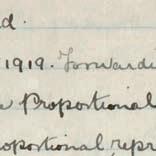 d.
1919. Forwardi
Proportional
oportional repr